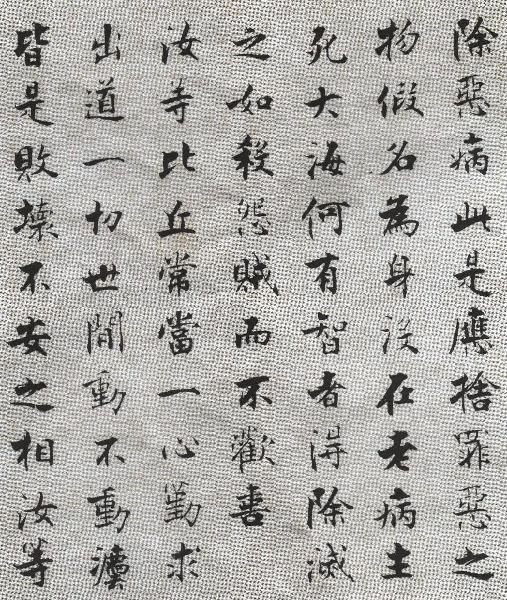 除惡病此是應捨罪惡之
物假名為身没在老病生
死大海何有智者得除滅
之如殺怨賊而不歡喜
汝等比丘常當一心勤求
出道一切世間動不動灋
皆是敗壞不安之相汝等